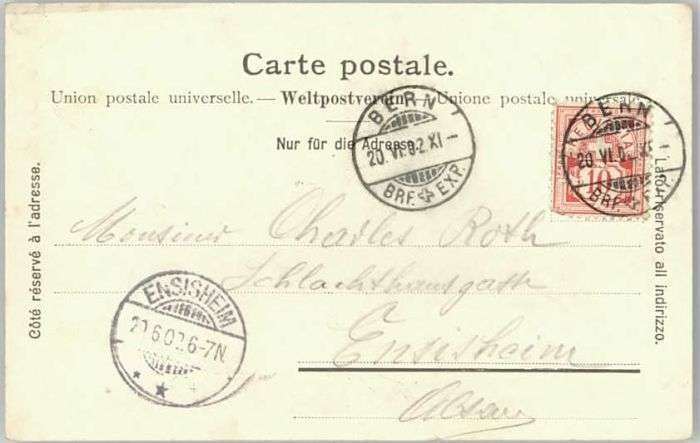 Carte postale.
Union postale universelle. — Weltpostverein — Unione postale universale
Nur für die Adresse.
BERN 1
20. VI. 02. XI –
BRF. EXP.
BERN 1
20. VI. 02. XI
BRF. EXP.
10
Côté réservé à l'adresse.
Lato riservato all indirizzo.
Monsieur Charles Roth
Schlachthausgasse
Ensisheim
Alsace
ENSISHEIM
6.02.6-7N.